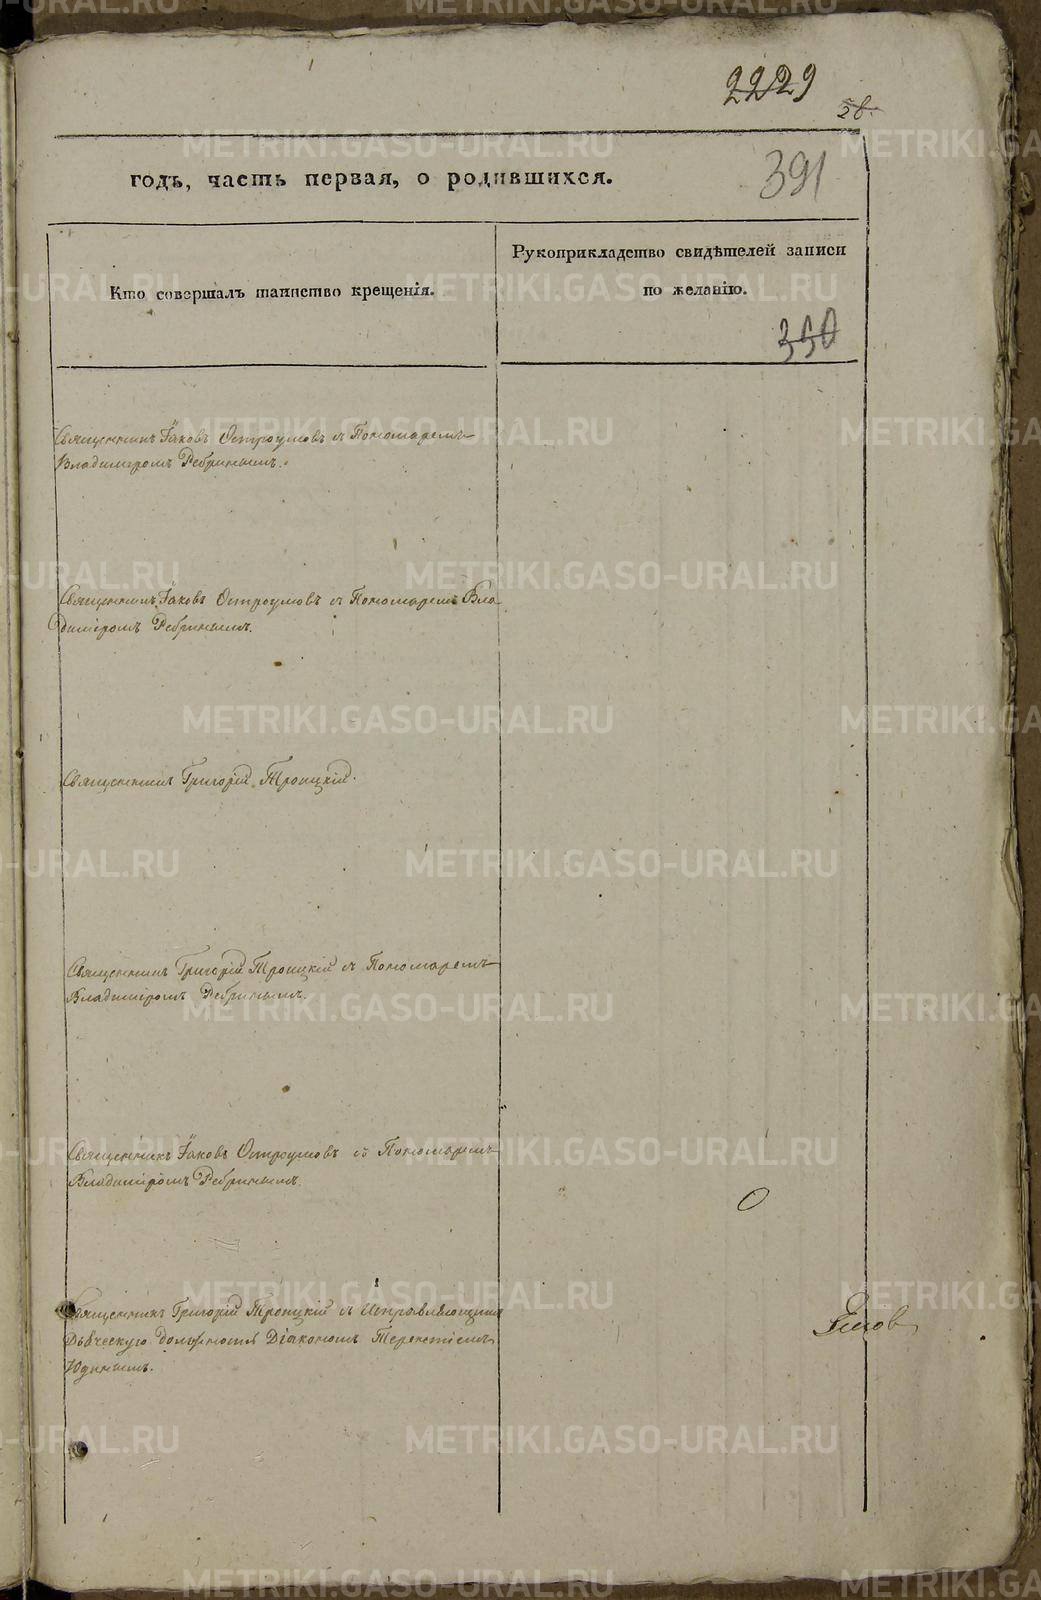 2229
26.
годъ, часть первая, о родившихся.
391
Кто совершалъ таинство крещенія.
Рукоприкладство свидѣтелей записи
по желанію.
350
Священникъ Іаковъ Остроумовъ съ Пономаремъ
Владиміромъ Ребринымъ.
Священникъ Іаковъ Остроумовъ съ Пономаремъ Вла-
диміромъ Ребринымъ.
Священникъ Григорій Троицкій.
Священникъ Григорій Троицкій съ Пономаремъ
Владиміромъ Ребринымъ.
Священникъ Іаковъ Остроумовъ съ Пономаремъ
Владиміромъ Ребринымъ.
Священникъ Григорій Троицкій съ Исправляющимъ
Дьяческую должность Діакономъ Терентіемъ
Юдинымъ.
METRIKI.GASO-URAL.RU